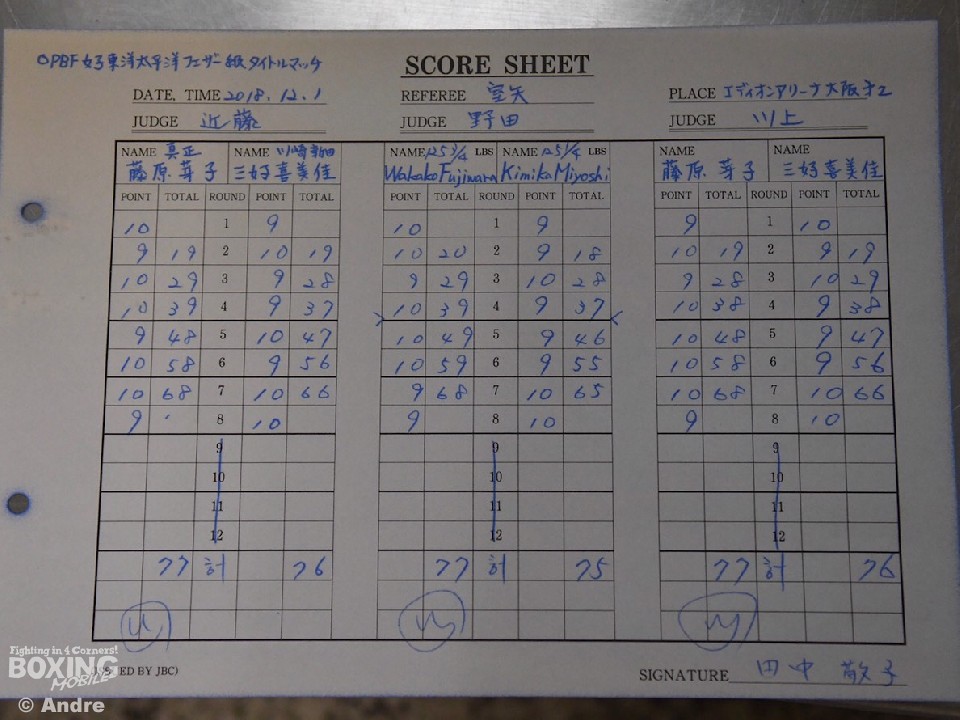 OPBF 女子東洋太平洋フェザー級タイトルマッチ
SCORE SHEET
DATE, TIME 2018.12.1 REFEREE 室矢 PLACE エディオンアリーナ大阪第2
JUDGE 近藤 JUDGE 野田 JUDGE 川上
NAME 真正 NAME 川崎新田 NAME 125 3/4 LBS 125 1/4 LBS NAME NAME
藤原芽子 三好喜美佳 Wakako Fujiwara Kimika Miyoshi 藤原芽子 三好喜美佳
POINT TOTAL ROUND POINT TOTAL POINT TOTAL ROUND POINT TOTAL POINT TOTAL ROUND POINT TOTAL
10 1 9 10 1 9 9 1 10
9 19 2 10 19 10 20 2 9 18 10 19 2 9 19
10 29 3 9 28 9 29 3 10 28 9 28 3 10 29
10 39 4 9 37 10 39 4 9 37 10 38 4 9 38
9 48 5 10 47 10 49 5 9 46 10 48 5 9 47
10 58 6 9 56 10 59 6 9 55 10 58 6 9 56
10 68 7 10 66 9 68 7 10 65 10 68 7 10 66
9 8 10 9 8 10 9 8 10
9 9 9
10 10 10
11 11 11
12 12 12
77 計 76 77 計 75 77 計 76
ED BY JBC)
SIGNATURE 田中 敬子
Fighting in 4 Corners!
BOXING
MOBILE
© Andre